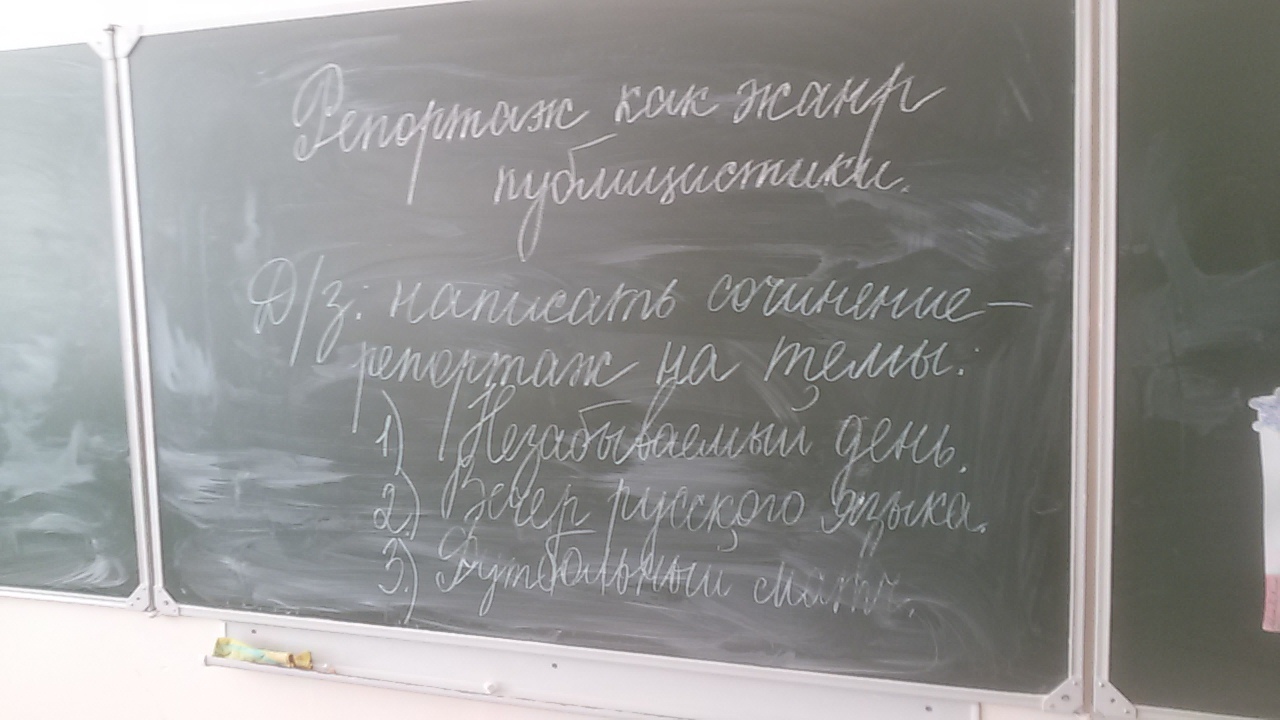 Репортаж как жанр
публицистики.
Д/з: написать сочинение –
репортаж на темы:
1) Незабываемый день.
2) Вечер русского языка.
3) Футбольный матч.